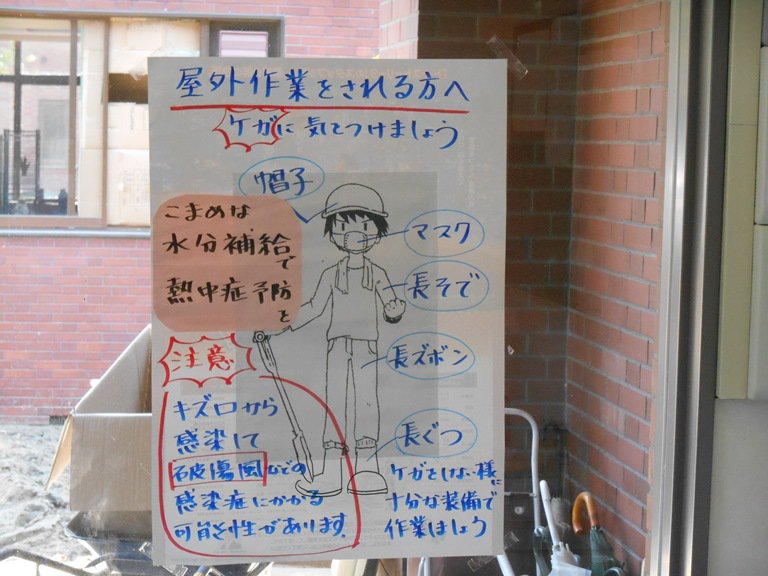 屋外作業をされる方へ
ケガに気をつけましょう
帽子
こまめな
水分補給で
熱中症予防を
マスク
長そで
長ズボン
長ぐつ
注意
キズ口から
感染して
破傷風などの
感染症にかかる
可能性があります。
ケガをしない様に
十分な装備で
作業しましょう